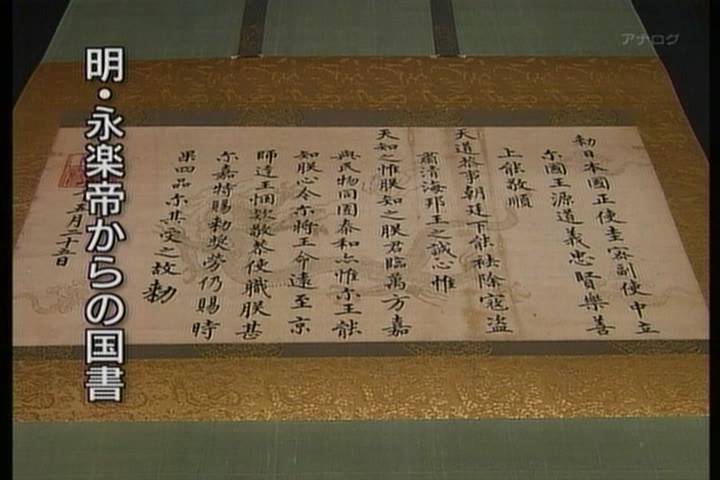 アナログ
明・永楽帝からの国書
勅日本國正使圭密副使中立
尓國王源道義忠賢樂善
上能敬順
天道恭事朝廷下能祛除寇盗
肅清海邦王之誠心惟
天知之惟朕知之朕君臨萬方嘉
與民物同囿泰和亦惟尓王能
如朕心今尓將王命遠至京
師達王悃欵敬恭使職朕甚
尓嘉特賜勅奨勞仍賜時
菓四品尓其受之故勅
五月二十五日